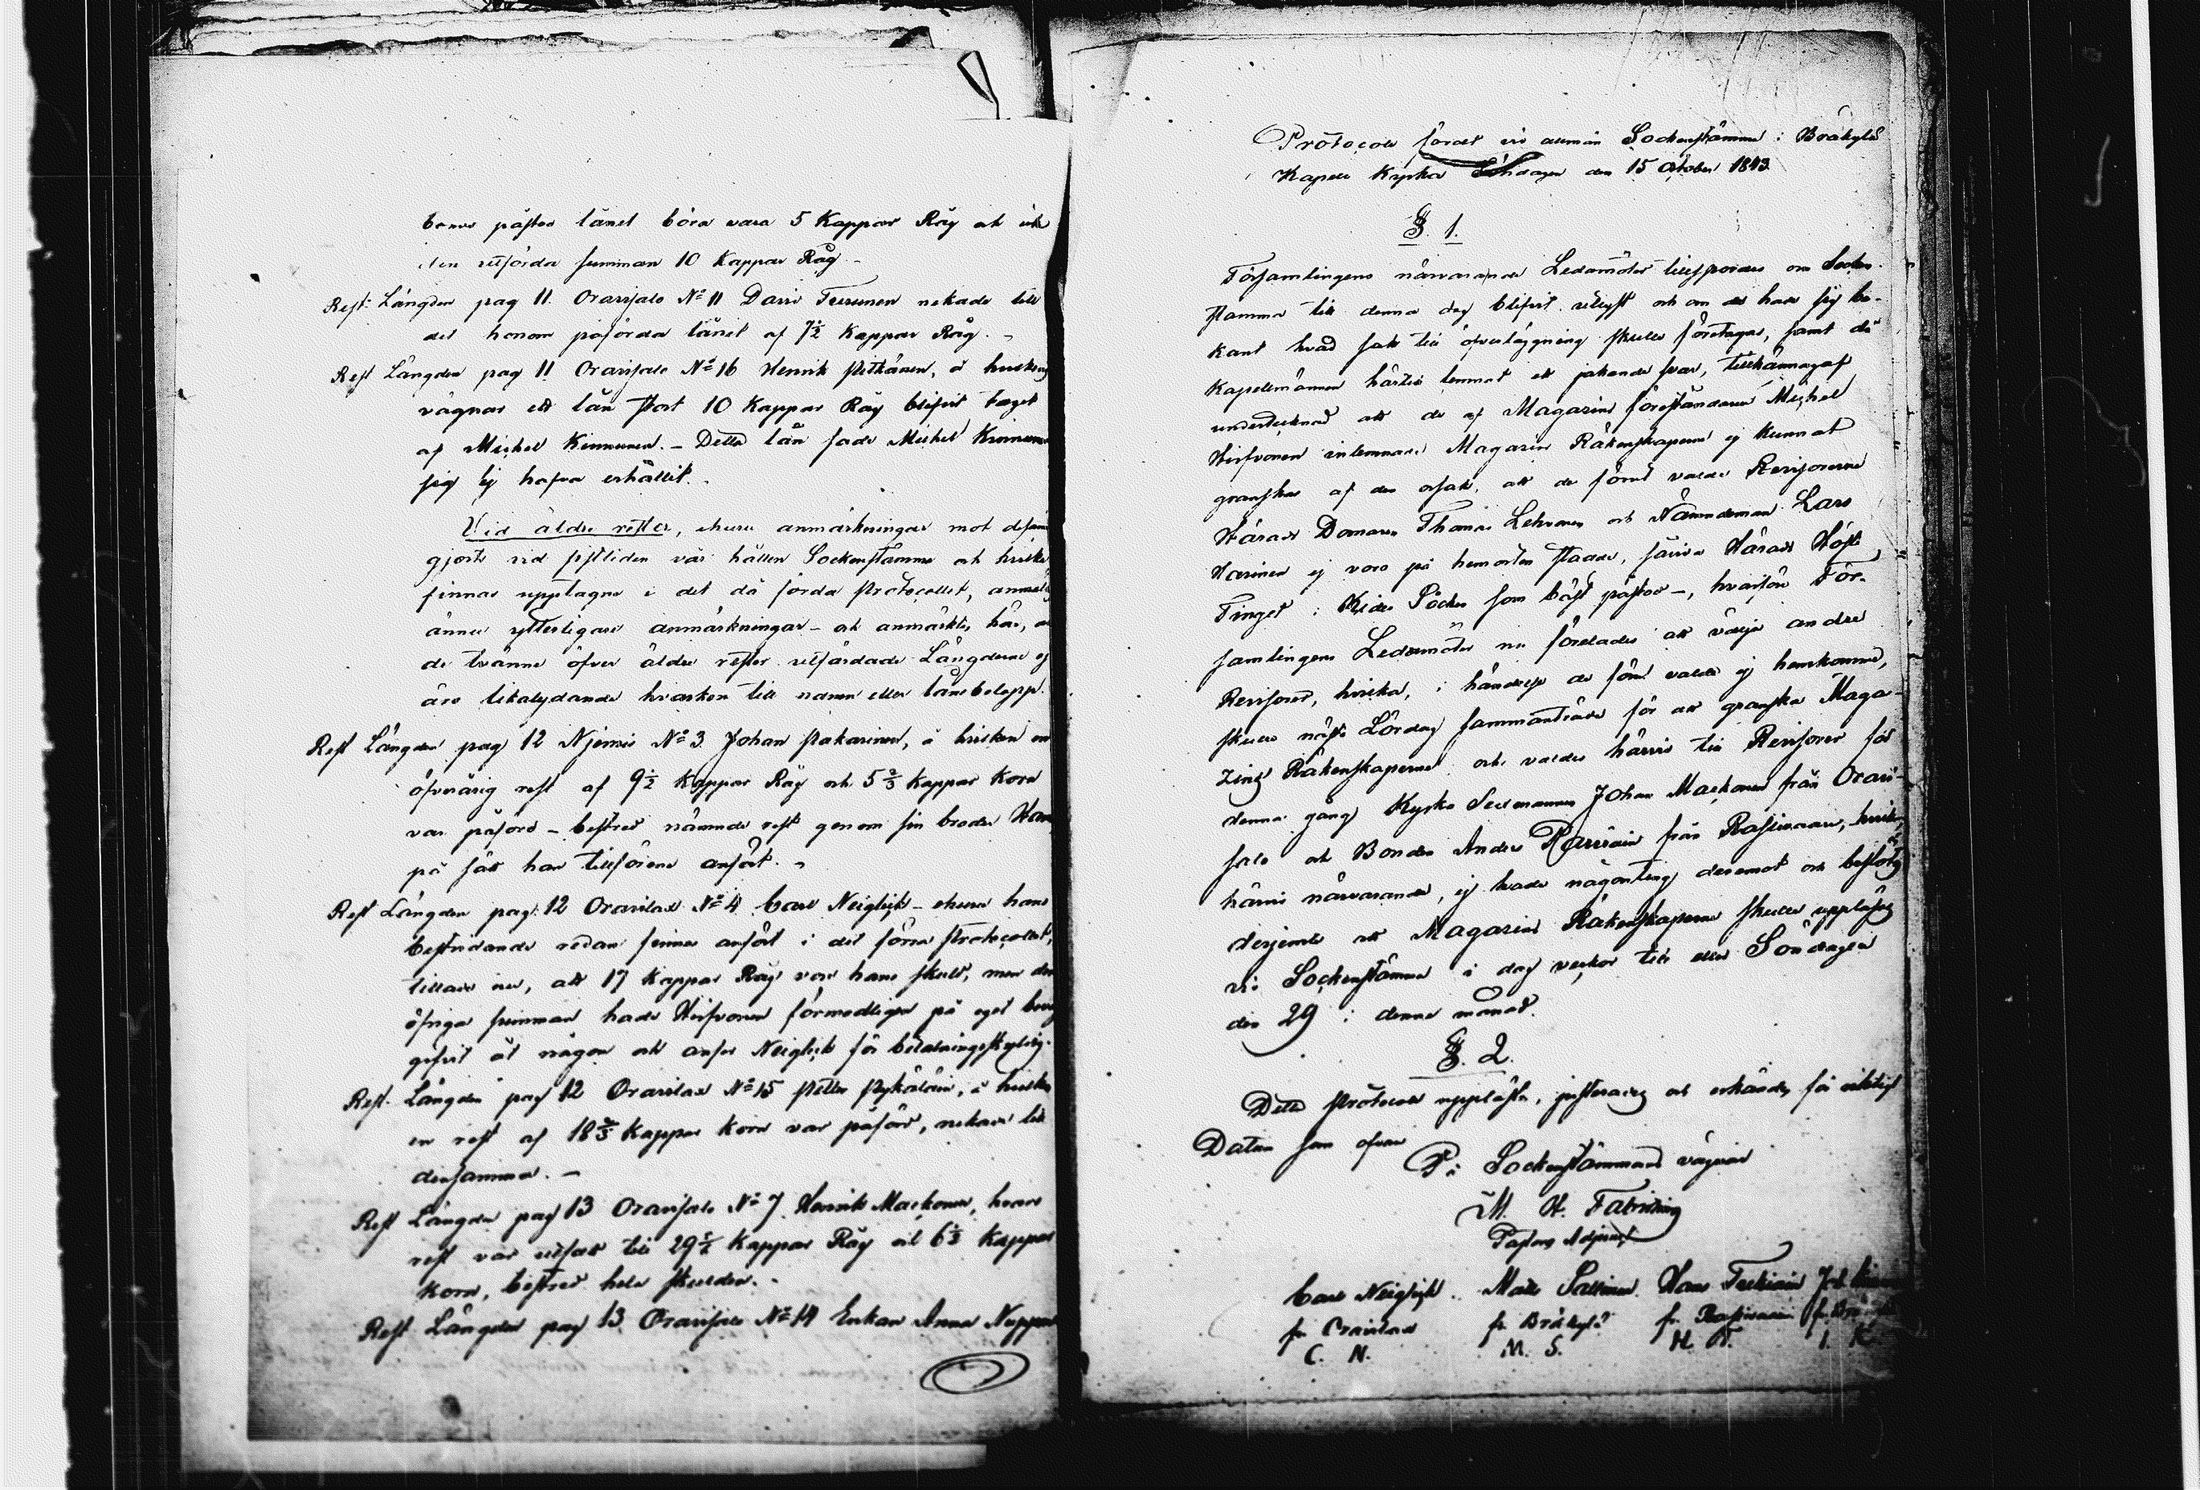 denne påstod lånet böra vara 5 Kappar Råg och icke
den utförda summan 10 Kappar Råg –
Rest Längden pag 11. Oravisalo No 11 Davis Turunen nekade till
det honom påförda lånet af 7½ Kappar Råg. –
Rest Längden pag 11 Oravisalo No 16 Henrik Pitkänen, å hvilkens
vägnar ett lån stort 10 Kappar Råg blifvit taget
af Michel Kinnunen. – Detta lån sade Michel Kinnunen
sig ej hafva erhållit. –
Vid äldre rester, ehuru anmärkningar mot desamma
gjorts vid sistliden vår hållen Sockenstämma och hvilka
finnas upptagne i det då förda Protocollet,
ännu ytterligare anmärkningar – och anmärktes här, at
de tvänne öfver äldre rester utfärdade Längderne ej
äro likalydande hvarken till namn eller lånebelopp.
Rest Längden pag 12 Njemis No 3 Johan Pakarinen, å hvilken en
öfverårig rest af 9½ Kappar Råg och 5⅔ Kappar Korn
var påförd – bestred nämnde rest genom sin broder Hans
på sätt han tillförene anfört. –
Rest Längden pag. 12 Oravilax No 4 Carl Neiglick – ehuru hans
bestridande redan finnes anfört i det förra Protocollet,
tillade nu, att 17 Kappar Råg var hans skuld, men den
öfriga summan hade Hirfvonen förmodligen på eget bevåg
gifvit åt någon och anser Neiglick för betalningsskyldig.
Rest Längden pag 12 Oravilax No 15 Petter Pykäläin, å hvilken
en rest af 18⅔ Kappar Korn var påförd, nekade till
densamma. –
Rest Längden pag 13 Oravisalo No 7 Henrik Mackonen, hvars
rest var utförd till 29½ Kappar Råg och 6⅓ Kappar
Korn, bestred hela skulden. –
Rest Längden pag 13 Oravisalo No 14 Enkan Anna
Protocoll fördt vid allmän Sockenstämma i Bräkylä
Kapell Kyrka Söndagen den 15 October 1843
§. 1.
Församlingens närvarande Ledamöter tillspordes om Socken-
stämma till denna dag blifvit utlyst och om det hade sig be-
kant hvad sak till öfverläggning skulle företagas, samt då
Kapellmännen härtill lemnat ett jakande svar, tillkännagaf
undertecknad att de af Magazins föreståndaren Michel
Hirfvonen inlemnade Magazins Räkenskaperne ej kunnat
granskas af den orsak, att de förut valde Revisorerne
Härads Domaren Thomas Lehvonen och Nämndeman Lars
ej voro på hemorten stadde, såvida Härads Höst
Tinget i Kides Socken som bäst påstod –, hvarföre För-
samlingens Ledamöter nu förelades att välja andre
Revisorer, hvilka, i händelse de förut valde ej hemkomme,
skulle nästa Lördag sammanträda för att granska Maga-
zins Räkenskaperne och valdes härvid till Revisorer för
denna gång Kyrko Sexmannen Johan Mackonen från Oravi-
salo och Bonden Anders från Rasivaara, hvilka
härvid närvarande, ej hade någonting deremot och beslöts
derjemte att Magazins Räkenskaperne skulle uppläsas
vid Sockenstämma i dag veckor till eller Söndagen
den 29 i denna månad.
§. 2.
Detta Protocoll upplästes, justerades och erkändes för riktigt
Datum som ofvan
På Sockenstämmans vägnar
M. H. Fabritius
Pastors Adjunct
Carl Neiglick. Matts Sallinen. Hans Joh.
fr. Oravilax fr. Bräkylä fr. Rasivaara fr.
C. N. M. S. H. T. I. K.